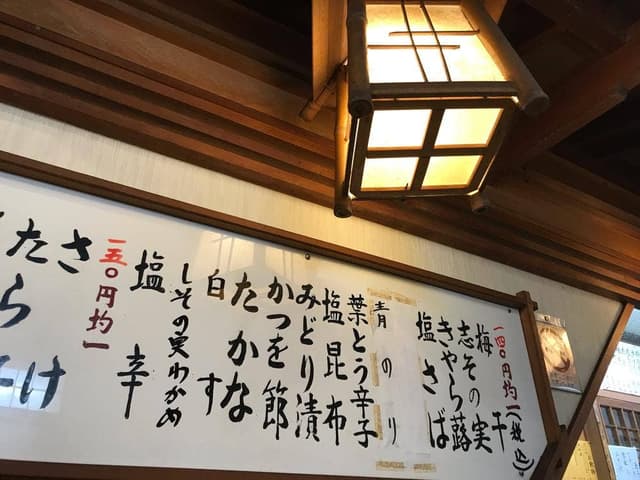 一四〇円均一(税込)
梅干
志その実
きゃら蕗
塩さば
青のり
葉とう辛子
塩昆布
みどり漬
かつを節
たかな
白す
しその実わかめ
塩辛
一五〇円均一
さけ